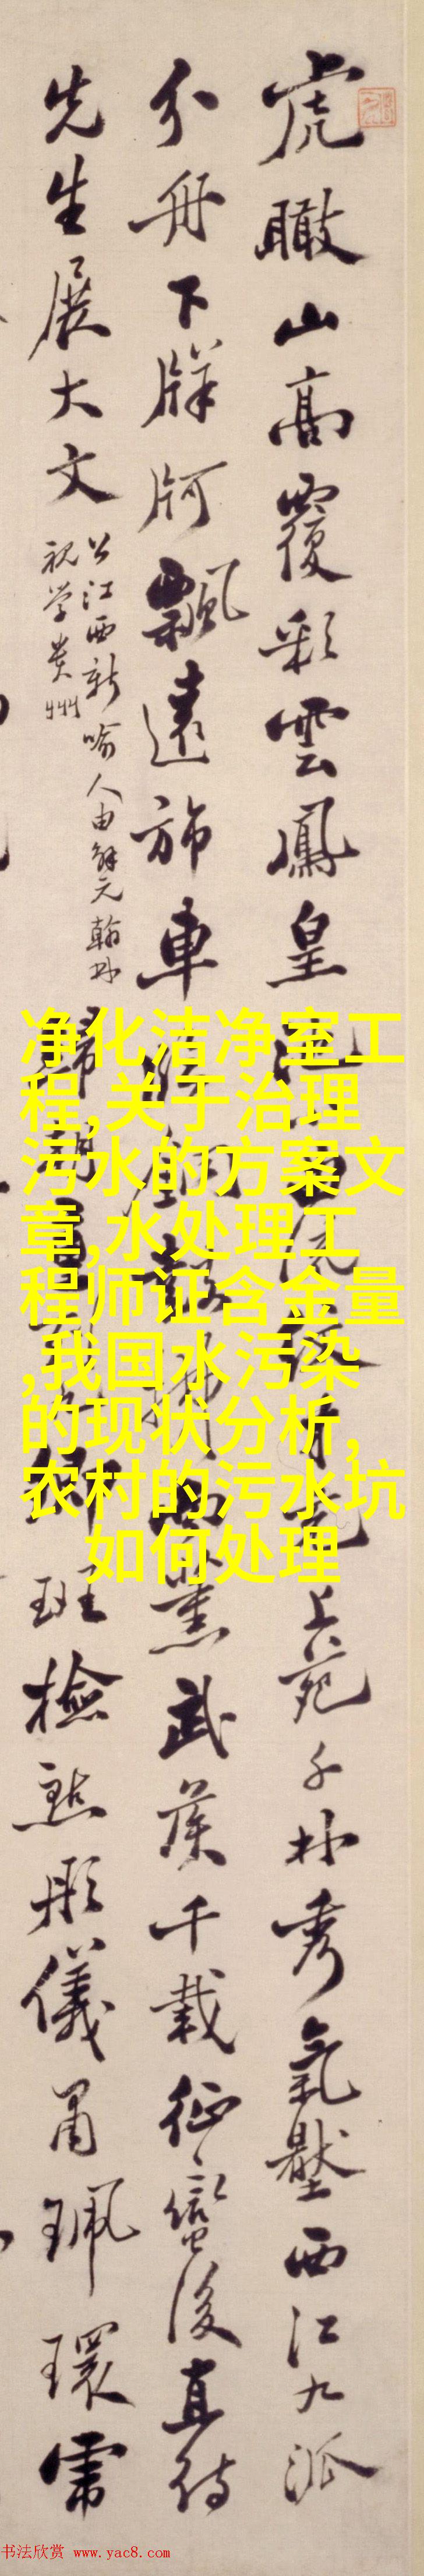 虎瞰山高覆彩雲鳳皇
上苑千林秀氣壓西江九派
分舟下牂牁飄遠旆車
薰武侯千載征蠻後直待
先生展大文
公江西新喻人由解元翰林
視學貴州
班檢點彤儀肅珮環
净化洁净室工
程,关于治理
污水的方案文
章,水处理工
程师证含金量
,我国水污染
的现状分析,
农村的污水坑
如何处理
书法欣赏 www.yac8.com